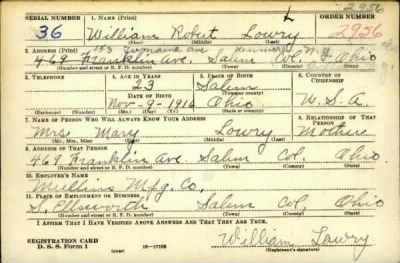 2956
SERIAL NUMBER 1. NAME (Print) ORDER NUMBER
36 William Robert Lowry 2956
(First) (Middle) (Last)
2. ADDRESS (Print)
469 Franklin Ave. Salem Col. Ohio
(Number and street or R. F. D. number) (Town) (County) (State)
3. TELEPHONE 4. AGE IN YEARS 5. PLACE OF BIRTH 6. COUNTRY OF CITIZENSHIP
23 Salem
(Town or county)
DATE OF BIRTH
Nov-9-1916 Ohio U.S.A.
(Exchange) (Number) (Mo.) (Day) (Yr.) (State or country)
7. NAME OF PERSON WHO WILL ALWAYS KNOW YOUR ADDRESS 8. RELATIONSHIP OF THAT PERSON
Mrs Mary Lowry Mother
(Mr., Mrs., Miss) (First) (Middle) (Last)
9. ADDRESS OF THAT PERSON
469 Franklin Ave. Salem Col. Ohio
(Number and street or R. F. D. number) (Town) (County) (State)
10. EMPLOYER'S NAME
Mullins Mfg. Co.
11. PLACE OF EMPLOYMENT OR BUSINESS
S. Ellsworth Salem Col. Ohio
(Number and street or R. F. D. number) (Town) (County) (State)
I AFFIRM THAT I HAVE VERIFIED ABOVE ANSWERS AND THAT THEY ARE TRUE.
REGISTRATION CARD
D. S. S. Form 1 (over) 16-17105 William Lowry
(Registrant's signature)